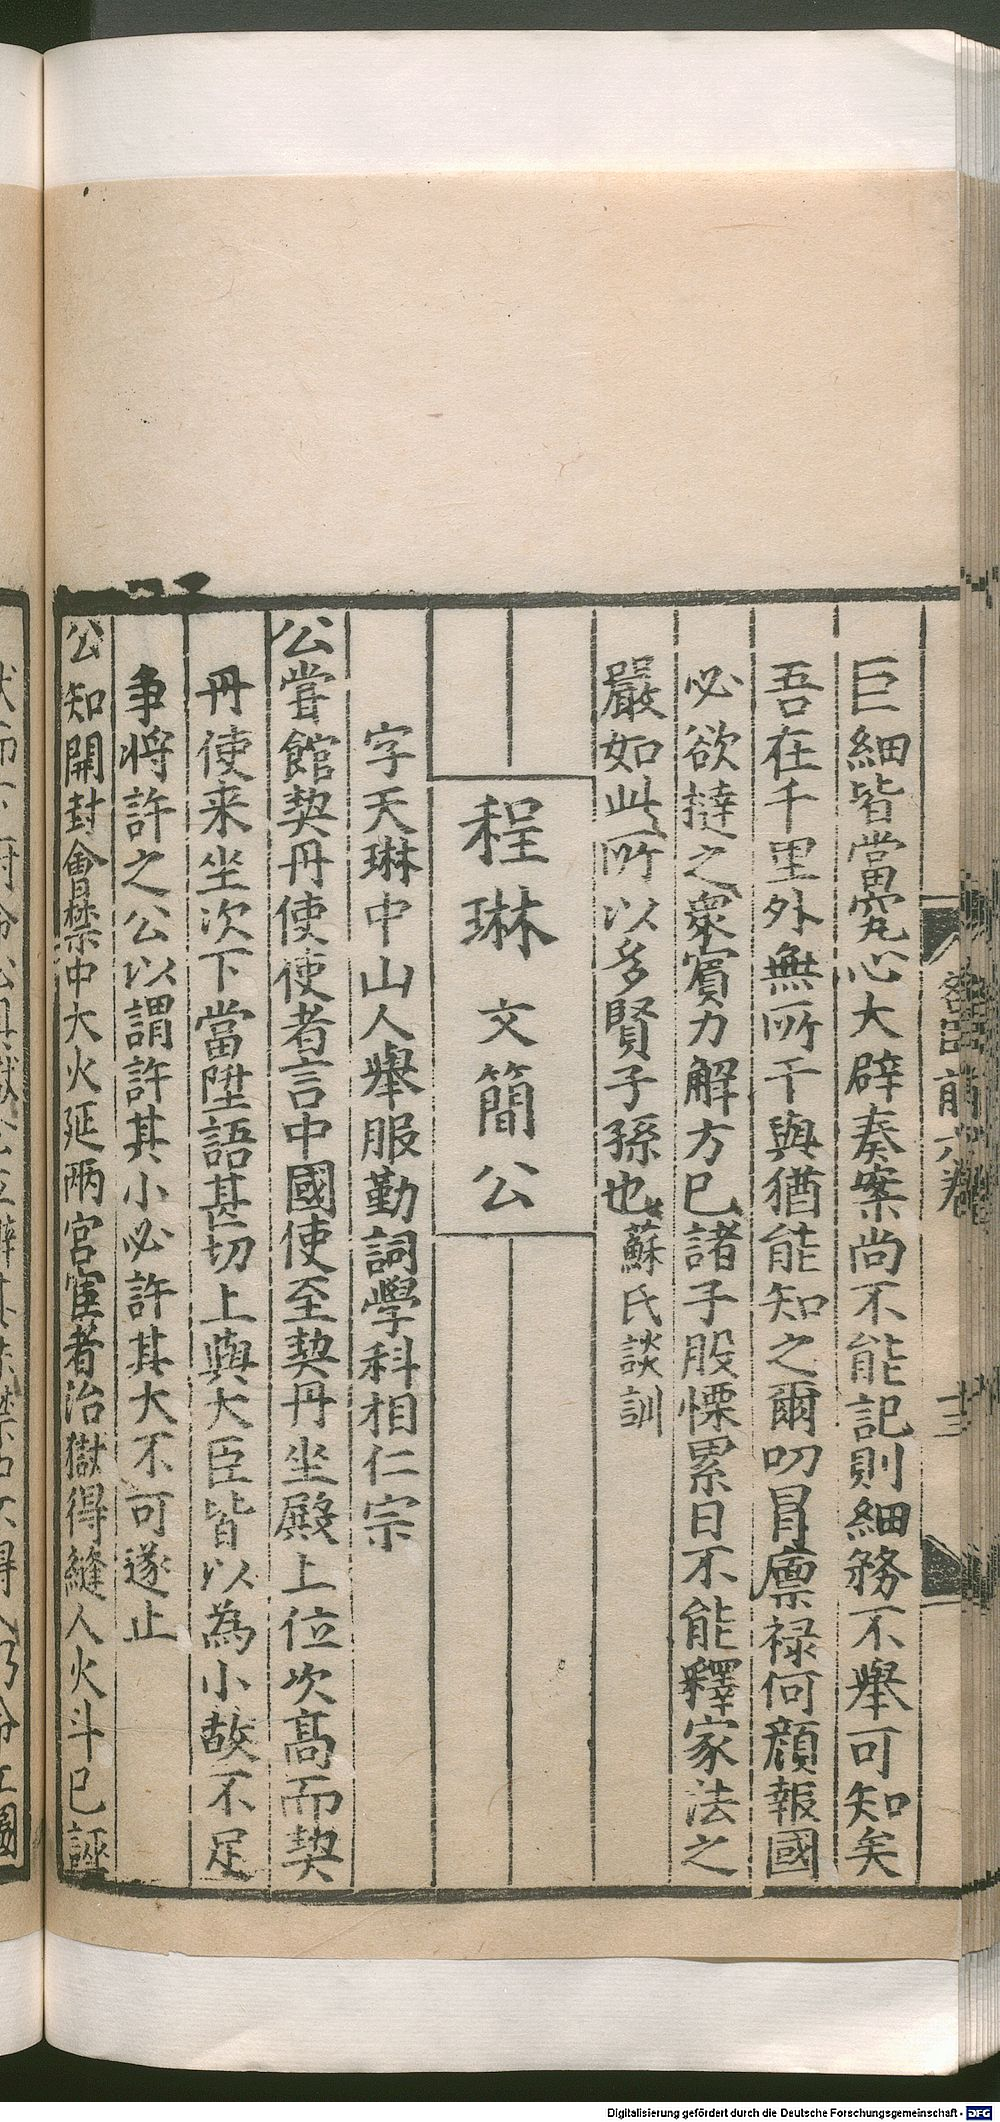 巨細皆當究心大辟奏案尚不能記則細務不舉可知矣
吾在千里外無所干與猶能知之爾叨冒廩禄何顔報國
必欲撻之衆賔力解方已諸子股慄累日不能釋家法之
嚴如此所以多賢子孫也蘇氏談訓
程琳 文簡公
字天琳中山人舉服勤詞學科相仁宗
公嘗館契丹使使者言中國使至契丹坐殿上位次髙而契
丹使来坐次下當陞語甚切上與大臣皆以為小故不足
争将許之公以謂許其小必許其大不可遂止
公知開封會禁中大火延兩宫宦者治獄得縫人火斗已誣
Digitalisierung gefördert durch die Deutsche Forschungsgemeinschaft - DFG